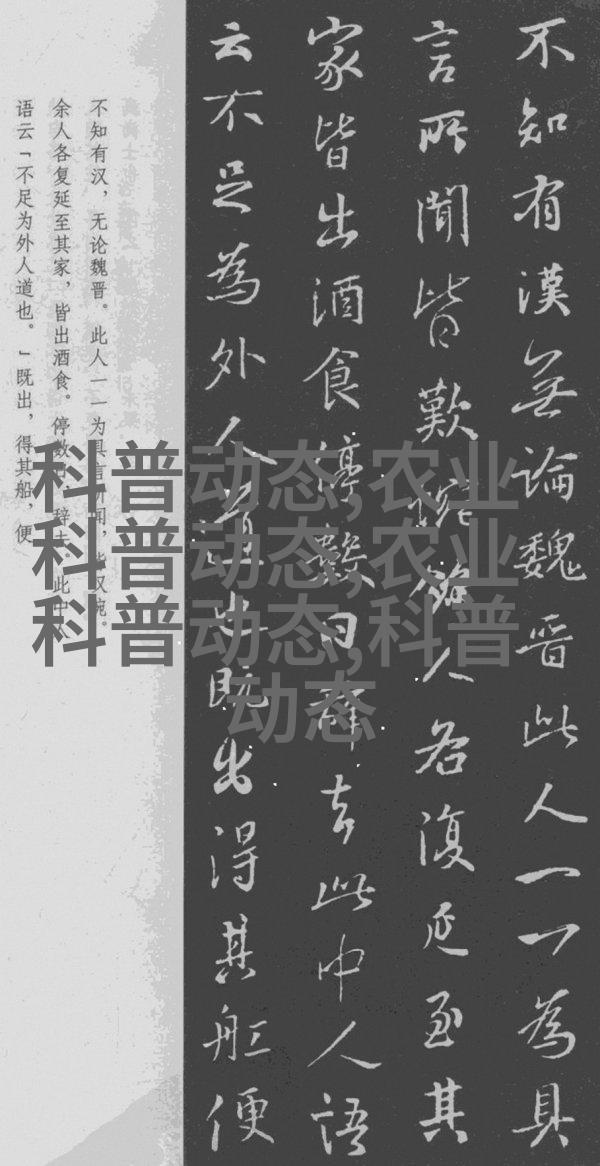 不知有漢無論魏晋此人一一為具
言所聞皆歎惋餘人各復延至其
家皆出酒食停數日辞去此中人語
云不足為外人道也既出得其舩便
不知有汉，无论魏晋。此人一一为具言所闻，皆叹惋。
余人各复延至其家，皆出酒食。停数日，辞去。此中人
语云「不足为外人道也。」既出，得其船，便
科普动态,农业
科普动态,农业
科普动态,科普
动态